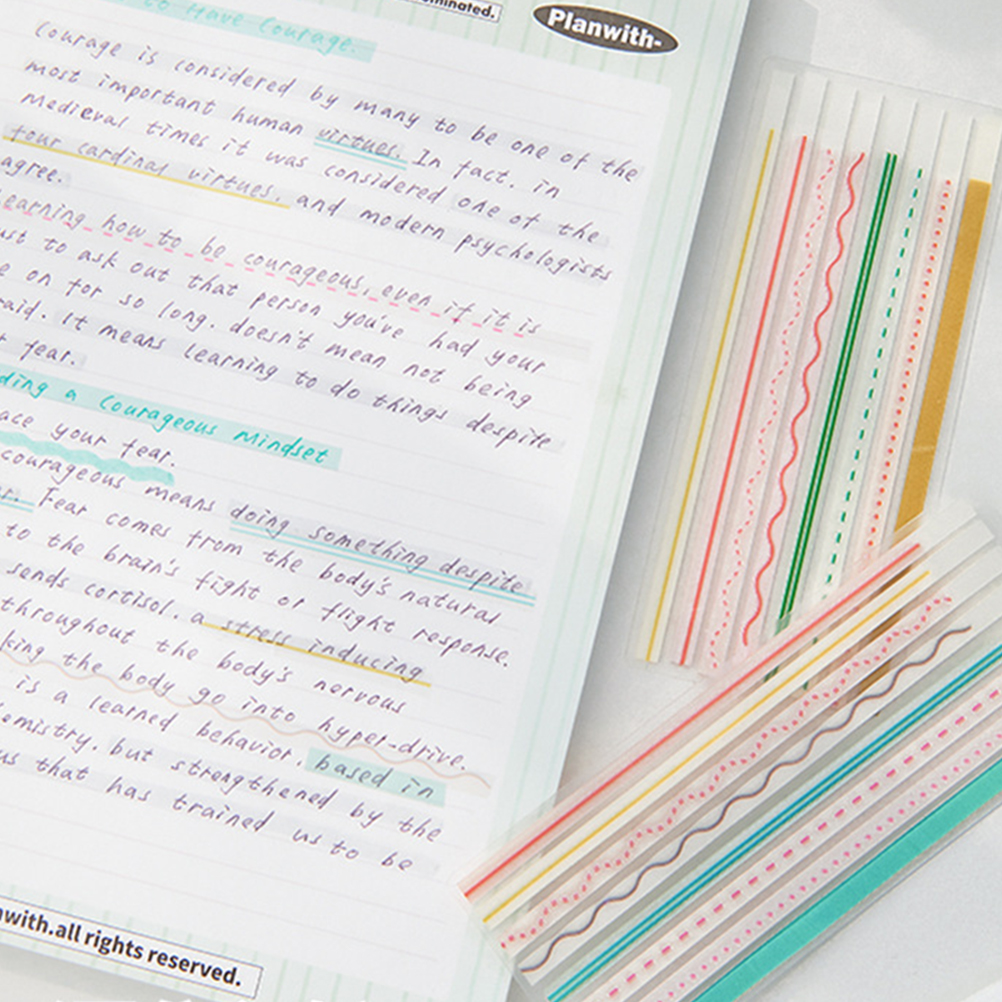 Planwith-
to Have Courage.
Courage is considered by many to be one of the
most important human virtues. In fact, in
Medieval times it was considered one of the
four cardinal virtues, and modern psychologists
agree.
earning how to be courageous, even if it is
to ask out that person you've had your
on for so long, doesn't mean not being
It means learning to do things despite
fear.
a Courageous Mindset
your fear.
courageous means doing something despite
Fear comes from the body's natural
to the brain's fight or flight response.
sends cortisol, a stress inducing
throughout the body's nervous
the body go into hyper-drive.
is a learned behavior, based in
but strengthened by the
that has trained us to be
all rights reserved.